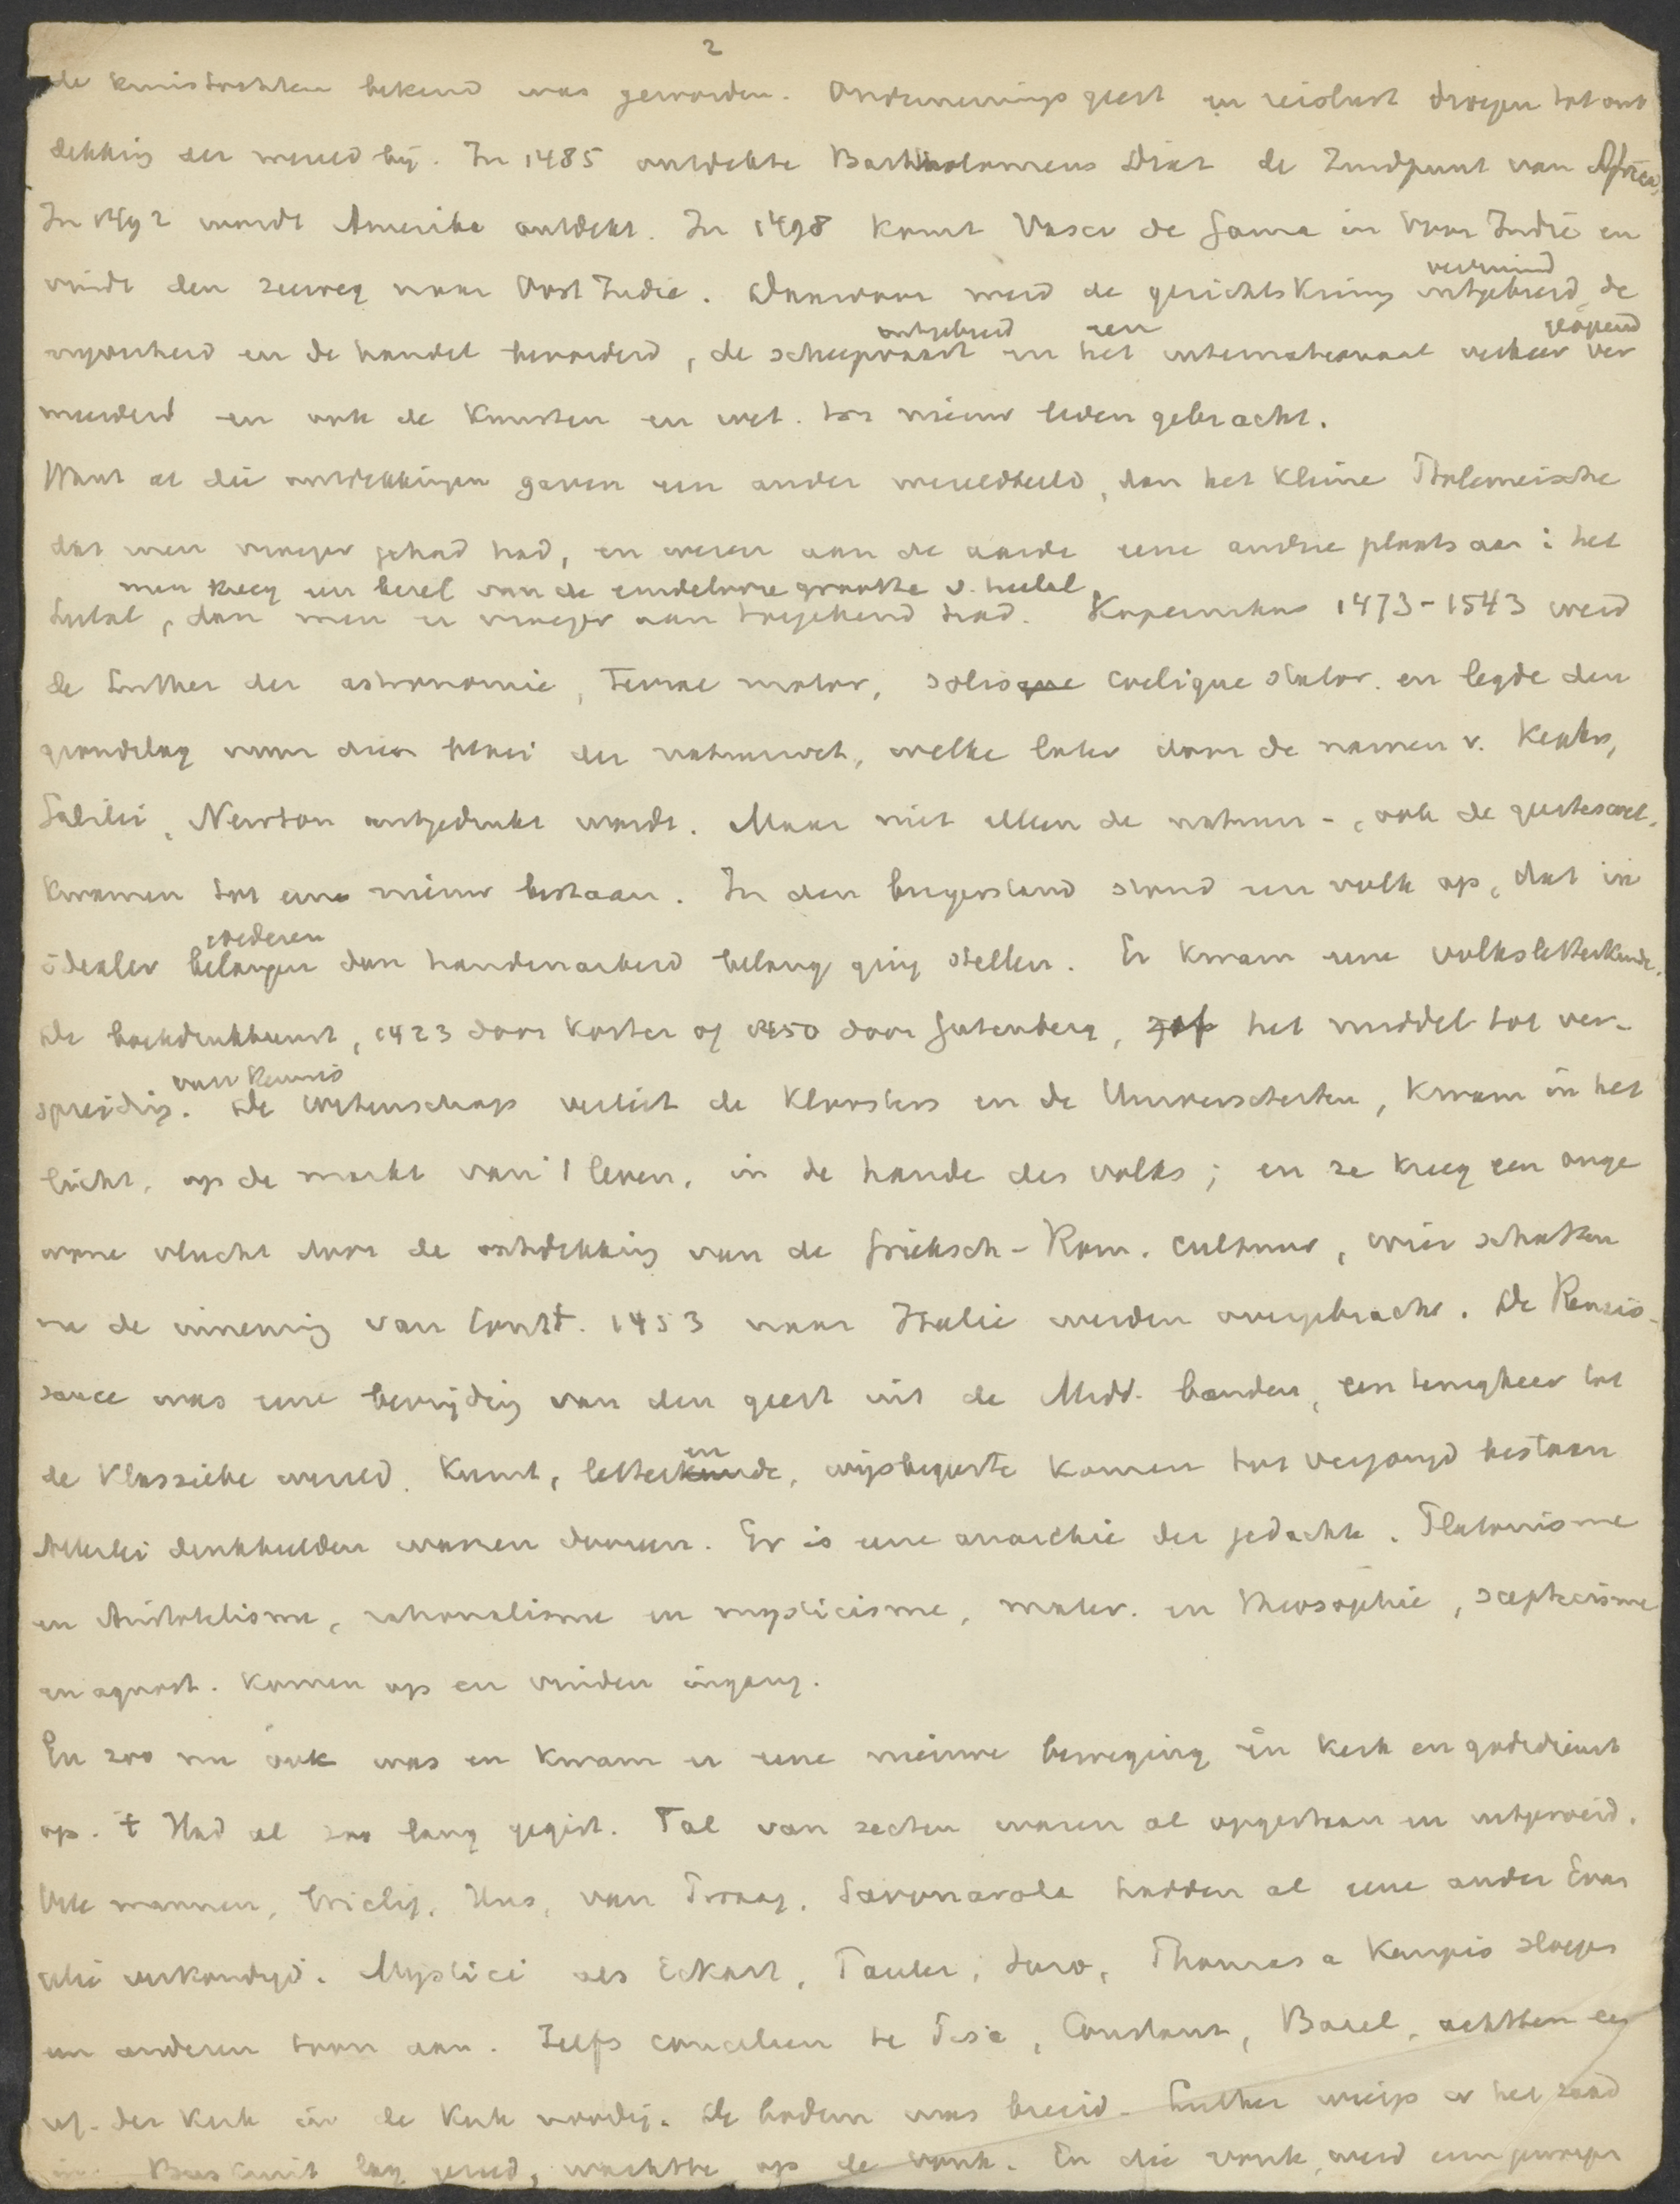 2
de kruistochten bekend was geworden. Ondernemingsgeest en reislust droegen tot ont
dekking der wereld bij. In 1485 ontdekte Bartholomeus Diaz de Zuidpunt van Africa,
In 1492 wordt Amerika ontdekt. In 1498 komt Vasco de Gama in Voor Indië en
vindt den zeeweg naar Oost Indie. Daardoor werd de gezichtskring uitgebreid, de
verruimd
nijverheid en de handel bevorderd, de scheepvaart en het internationaal verkeer ver
uitgebreid een
meerderd en ook de Kunsten en wet. tot nieuw leven gebracht.
Want al die ontdekkingen gaven een ander wereldbeeld, dan het kleine Ptolemeische
dat men vroeger gehad had, en wezen aan de aarde eene andere plaats aan i het
men kreeg een besef van de eindelooze grootte v. heelal
heelal, dan men er vroeger aan toegekend had. Kopernikus 1473-1543 werd
de Luther der astronomie, Terrae motor, solisque coelique stator. en legde den
grondslag voor dien bloei der natuurwet., welke later door de namen v. Kepler,
Galilei, Newton uitgedrukt wordt. Maar niet alleen de natuur-, ook de geesteswet.
kwamen tot een nieuw bestaan. In den burgerstand stond een volk op, dat in
idealer belangen dan handenarbeid belang ging stellen. Er kwam eene volksletterkunde.
goederen
De boekdrukkunst, 1423 door Koster of 1450 door Gutenberg, gaf het middel tot ver-
van kennis
spreiding. De wetenschap verliet de Kloosters en de Universiteiten, kwam in het
licht, op de markt van 't leven, in de hande des volks; en ze kreeg een onge
wone vlucht door de ontdekking van de Grieksch-Rom. cultuur, wier schatten
na de inneming van Const. 1453 naar Italie werden overgebracht. De Renais-
sance was eene bevrijding van den geest uit de Midd. banden, een terugkeer tot
de Klassieke wereld. Kunst, letterkunde, wijsbegeerte komen tot verjongd bestaan
en
Allerlei denkbeelden waren dooreen. Er is eene anarchie der gedachte. Platonisme
en Aristotelisme, rationalisme en mysticisme, mater. en theosophie, scepticisme
en agnost. komen op en vinden ingang.
En zoo nu ook was en kwam er eene nieuwe beweging in kerk en godsdienst
op. t Had al zoo lang gegist. Tal van secten waren al opgestaan en uitgeroeid.
Vele mannen, Wiclif, Hus, van Praag, Savonarola hadden al eene ander Evan
gelie verkondigd. Mystici als Eckart, Tauler, Suso, Thomas a Kempis sloegen
een anderen toon aan. Zelfs concilien te Pisa, Constanz, Basel, achtten een
ref. der Kerk in de Kerk noodig. De bodem was bereid. Luther wierp er het zaad
in. Buskruit lag gereed, wachtte op de vonk. En die vonk werd erin geworpen